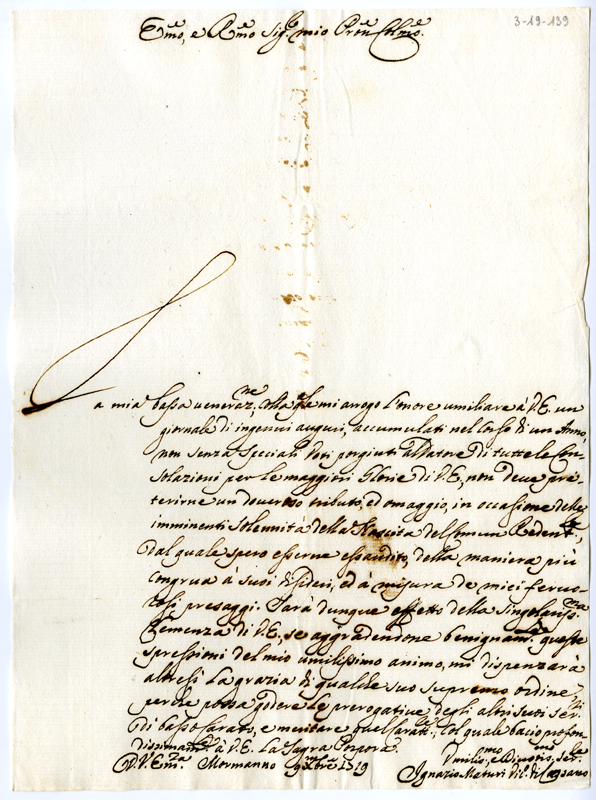 3-19-139
Em.o, e Rm.o Sig.re mio Pron Col.mo
La mia bassa veneraz.ne, colla q.le mi arrogo l'onore umiliare à V.E. un
giornale di ingenui auguri, accumulati nel corso di un Anno,
non senza speciali voti porgiuti al Datore di tutte le Con
solazioni per le maggiori Glorie di V.E, non deve pre
terirne un doveroso tributo, ed omaggio, in occasione delle
imminenti Solennità della Nascita del comun Redent.re,
dal quale spero esserne essaudito, della maniera più
congrua à suoi desideri, ed à misura de miei fervo-
rosi presaggi. Sarà dunque effetto della Singolariss.ma
Clemenza di V.E, se aggradendone benignam.te queste
spressioni del mio umilissimo animo, mi dispenzarà
altresì la grazia di qualche suo supremo ordine,
perche possa godere le prerogative degli altri suoi ser.ri
di basso Carato, e meritare quell
col quale bacio profon
dissimam.te à V.E. la Sagra Porpora.
D. V. Em.za Mormanno
Umiliss.mo, e Divotis.mo Ser.re
Ignazio Maturi Vic. di Cassano